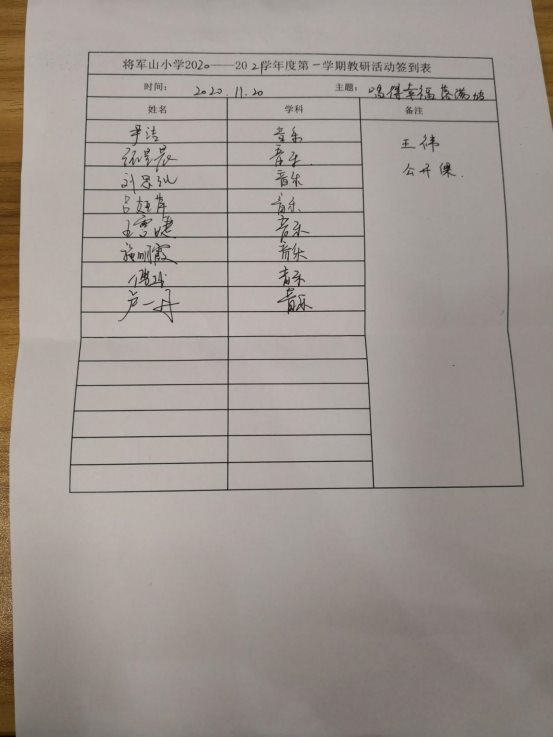 将军山小学2020——2021学年度第一学期教研活动签到表
时间： 2020.11.20 主题： 唱得幸福落满坡
姓名 学科 备注
尹洁 音乐 王伟
张星辰 音乐 公开课.
音乐
音乐
王雪婕 音乐
施明霞 音乐
音乐
卢一丹 音乐